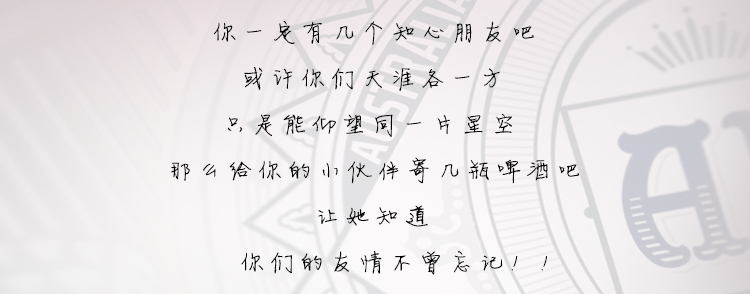 你一定有几个知心朋友吧
或许你们天涯各一方
只是能仰望同一片星空
那么给你的小伙伴寄几瓶啤酒吧
让她知道
你们的友情不曾忘记！！